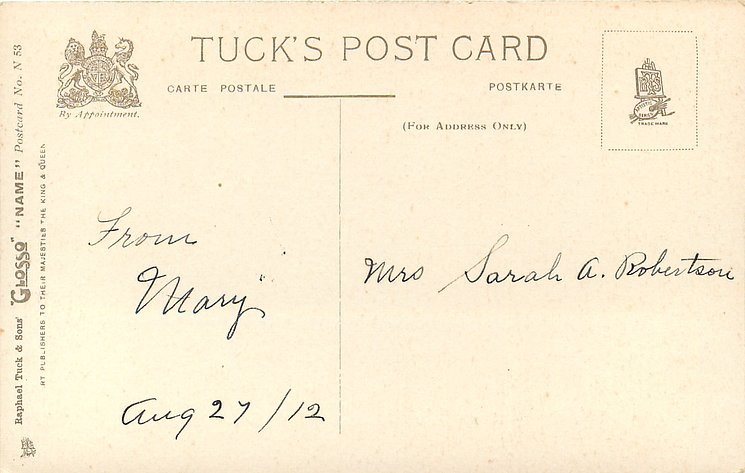 TUCK'S POST CARD
CARTE POSTALE
POSTKARTE
By Appointment.
(FOR ADDRESS ONLY)
TRADE MARK
Raphael Tuck & Sons' "GLOSSO" "NAME" Postcard No. N 53
ART PUBLISHERS TO THEIR MAJESTIES THE KING & QUEEN
From
Mary
Aug 27/12
Mrs Sarah A. Robertson